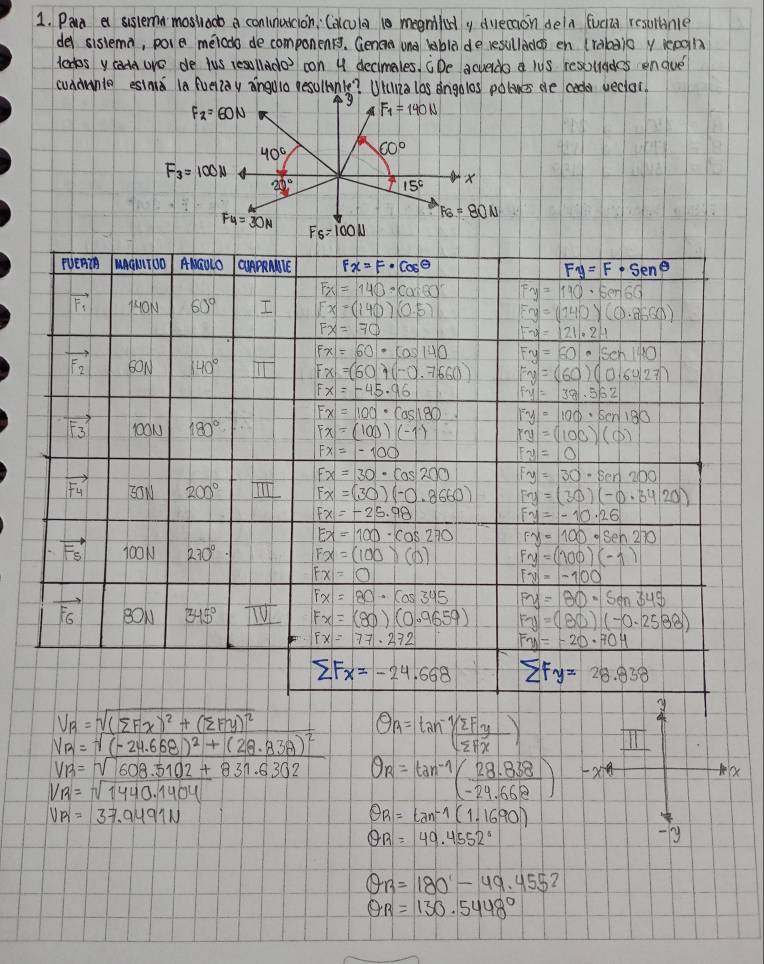 1. Para el sistema mostrado a continuación: Calcula la magnitud y dirección de la fuerza resultante
del sistema, por el método de componentes. Genera una tabla de resultados en trabajo y reporta
todos y cada uno de tus resultados con 4 decimales. ¿De acuerdo a tus resultados en qué
cuadrante estaría la fuerza y ángulo resultante? Utiliza los ángulos polares de cada vector.
F2 = 60N
y
F1 = 140N
40°
60°
F3 = 100N
x
20°
15°
F4 = 30N
F5 = 100N
F6 = 80N
FUERZA MAGNITUD ANGULO CUADRANTE Fx = F • Cosθ Fy = F • Senθ
F1 140N 60° I
Fx = 140 • Cos 60
Fx = (140)(0.5)
Fx = 70
Fy = 140 • Sen 60
Fy = (140)(0.8660)
Fy = 121.24
F2 60N 140° II
Fx = 60 • Cos 140
Fx = (60)(-0.7660)
Fx = -45.96
Fy = 60 • Sen 140
Fy = (60)(0.6427)
Fy = 38.562
F3 100N 180°
Fx = 100 • Cos 180
Fx = (100)(-1)
Fx = -100
Fy = 100 • Sen 180
Fy = (100)(0)
Fy = 0
F4 30N 200° III
Fx = 30 • Cos 200
Fx = (30)(-0.8660)
Fx = -25.98
Fy = 30 • Sen 200
Fy = (30)(-0.3420)
Fy = -10.26
F5 100N 270°
Fx = 100 • Cos 270
Fx = (100)(0)
Fx = 0
Fy = 100 • Sen 270
Fy = (100)(-1)
Fy = -100
F6 80N 345° IV
Fx = 80 • Cos 345
Fx = (80)(0.9659)
Fx = 77.272
Fy = 80 • Sen 345
Fy = (80)(-0.2588)
Fy = -20.704
ΣFx = -24.668 ΣFy = 28.838
VR = √(ΣFx)² + (ΣFy)²
VR = √(-24.668)² + (28.838)²
VR = √608.5102 + 831.6302
VR = √1440.1404
VR = 37.9491N
θR = tan-1(ΣFy/ΣFx)
θR = tan-1(28.838/-24.668)
θR = tan-1(1.1690)
θR = 49.4552°
θR = 180° - 49.4552
θR = 130.5448°
y
II
-x
x
-y